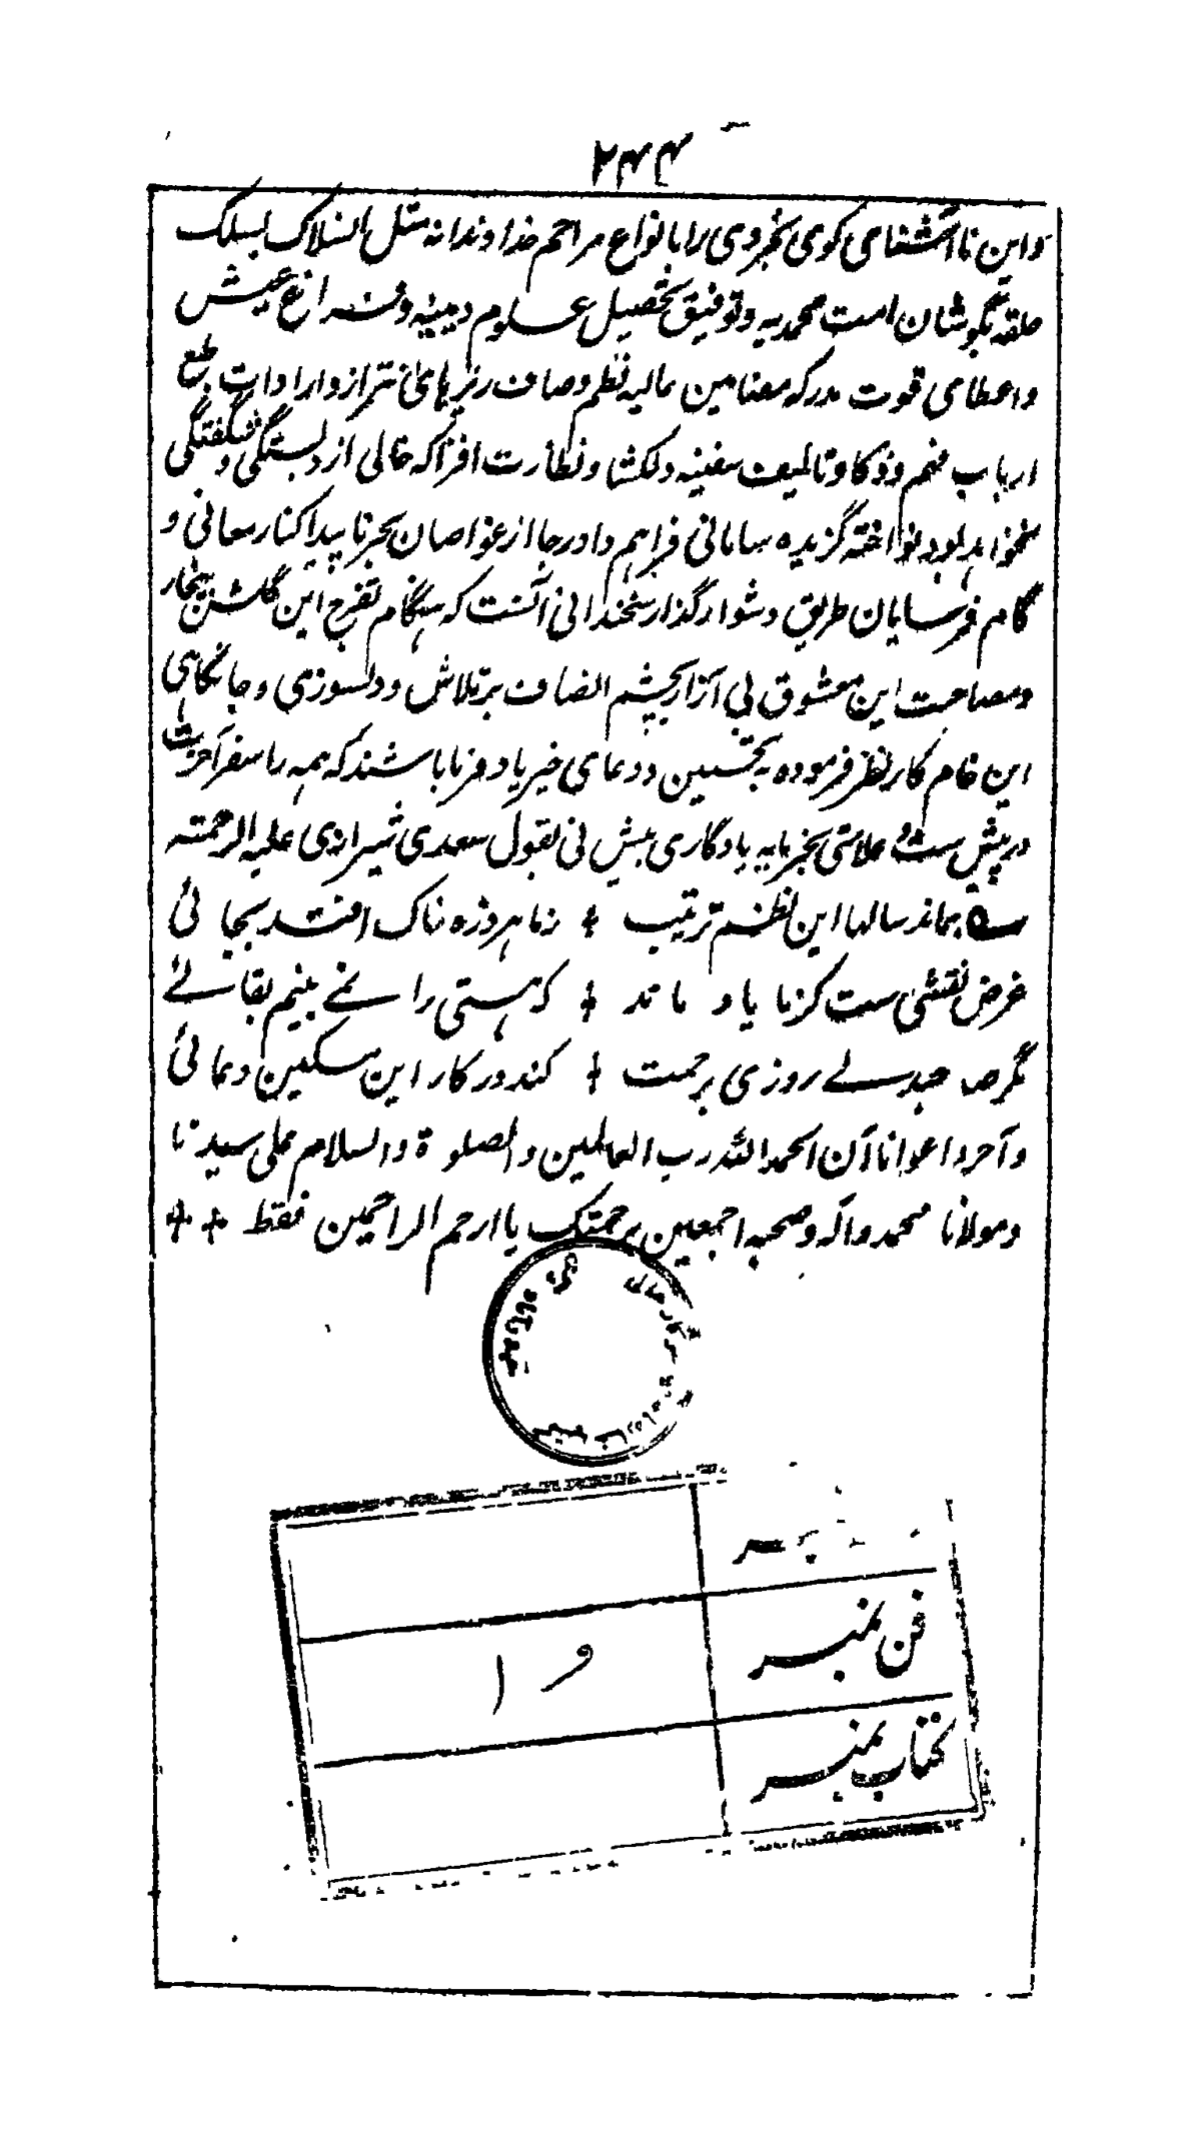 ۲۴۴
و این ناآشنای کوی بخردی را بانواع مراحم خداوندانه مثل انسلاک بسلک
حلقه بگوشان امت محمدیه و توفیق تحصیل علوم دینیه و فراغ عیش
و اعطای قوت مدرکه مضامین عالیه نظم و صاف نثر از واردات طبع
ارباب فهم و ذکا و تالیف سفینه دلکشا و نظارت افزا که خالی از دلبستگی و شگفتگی
نخواهد بود نواخته گزیده سامانی فراهم داد رجا از غواصان بحر ناپیدا کنار معانی و
گام فرسایان طریق دشوار گذار سخندانی آنست که هنگام تفرج این گلشن بیخار
و مصاحبت این معشوق بی آزار بچشم انصاف بر تلاش و دلسوزی و جانکاهی
این خام کار نظر فرموده به تحسین و دعای خیر یاد فرما باشند که همه را سفر آخرت
درپیش ست و علامتی بجز مایه یادگاری بیش نی بقول سعدی شیرازی علیه الرحمته
ے بماند سالها این نظم ترتیب + زما هر ذره خاک افتد بجائی
غرض نقشی ست کز ما یاد ماند + که هستی را نمے بینم بقائے
مگر صاحبدلے روزی برحمت + کند در کار این مسکین دعائی
و آخر دعوانا آن الحمد الله رب العالمین و الصلوة والسلام علی سیدنا
ومولانا محمد واله وصحبه اجمعین برحمتک یا ارحم الراحمین فقط ++
فن نمبر ۱ و
کتاب نمبر